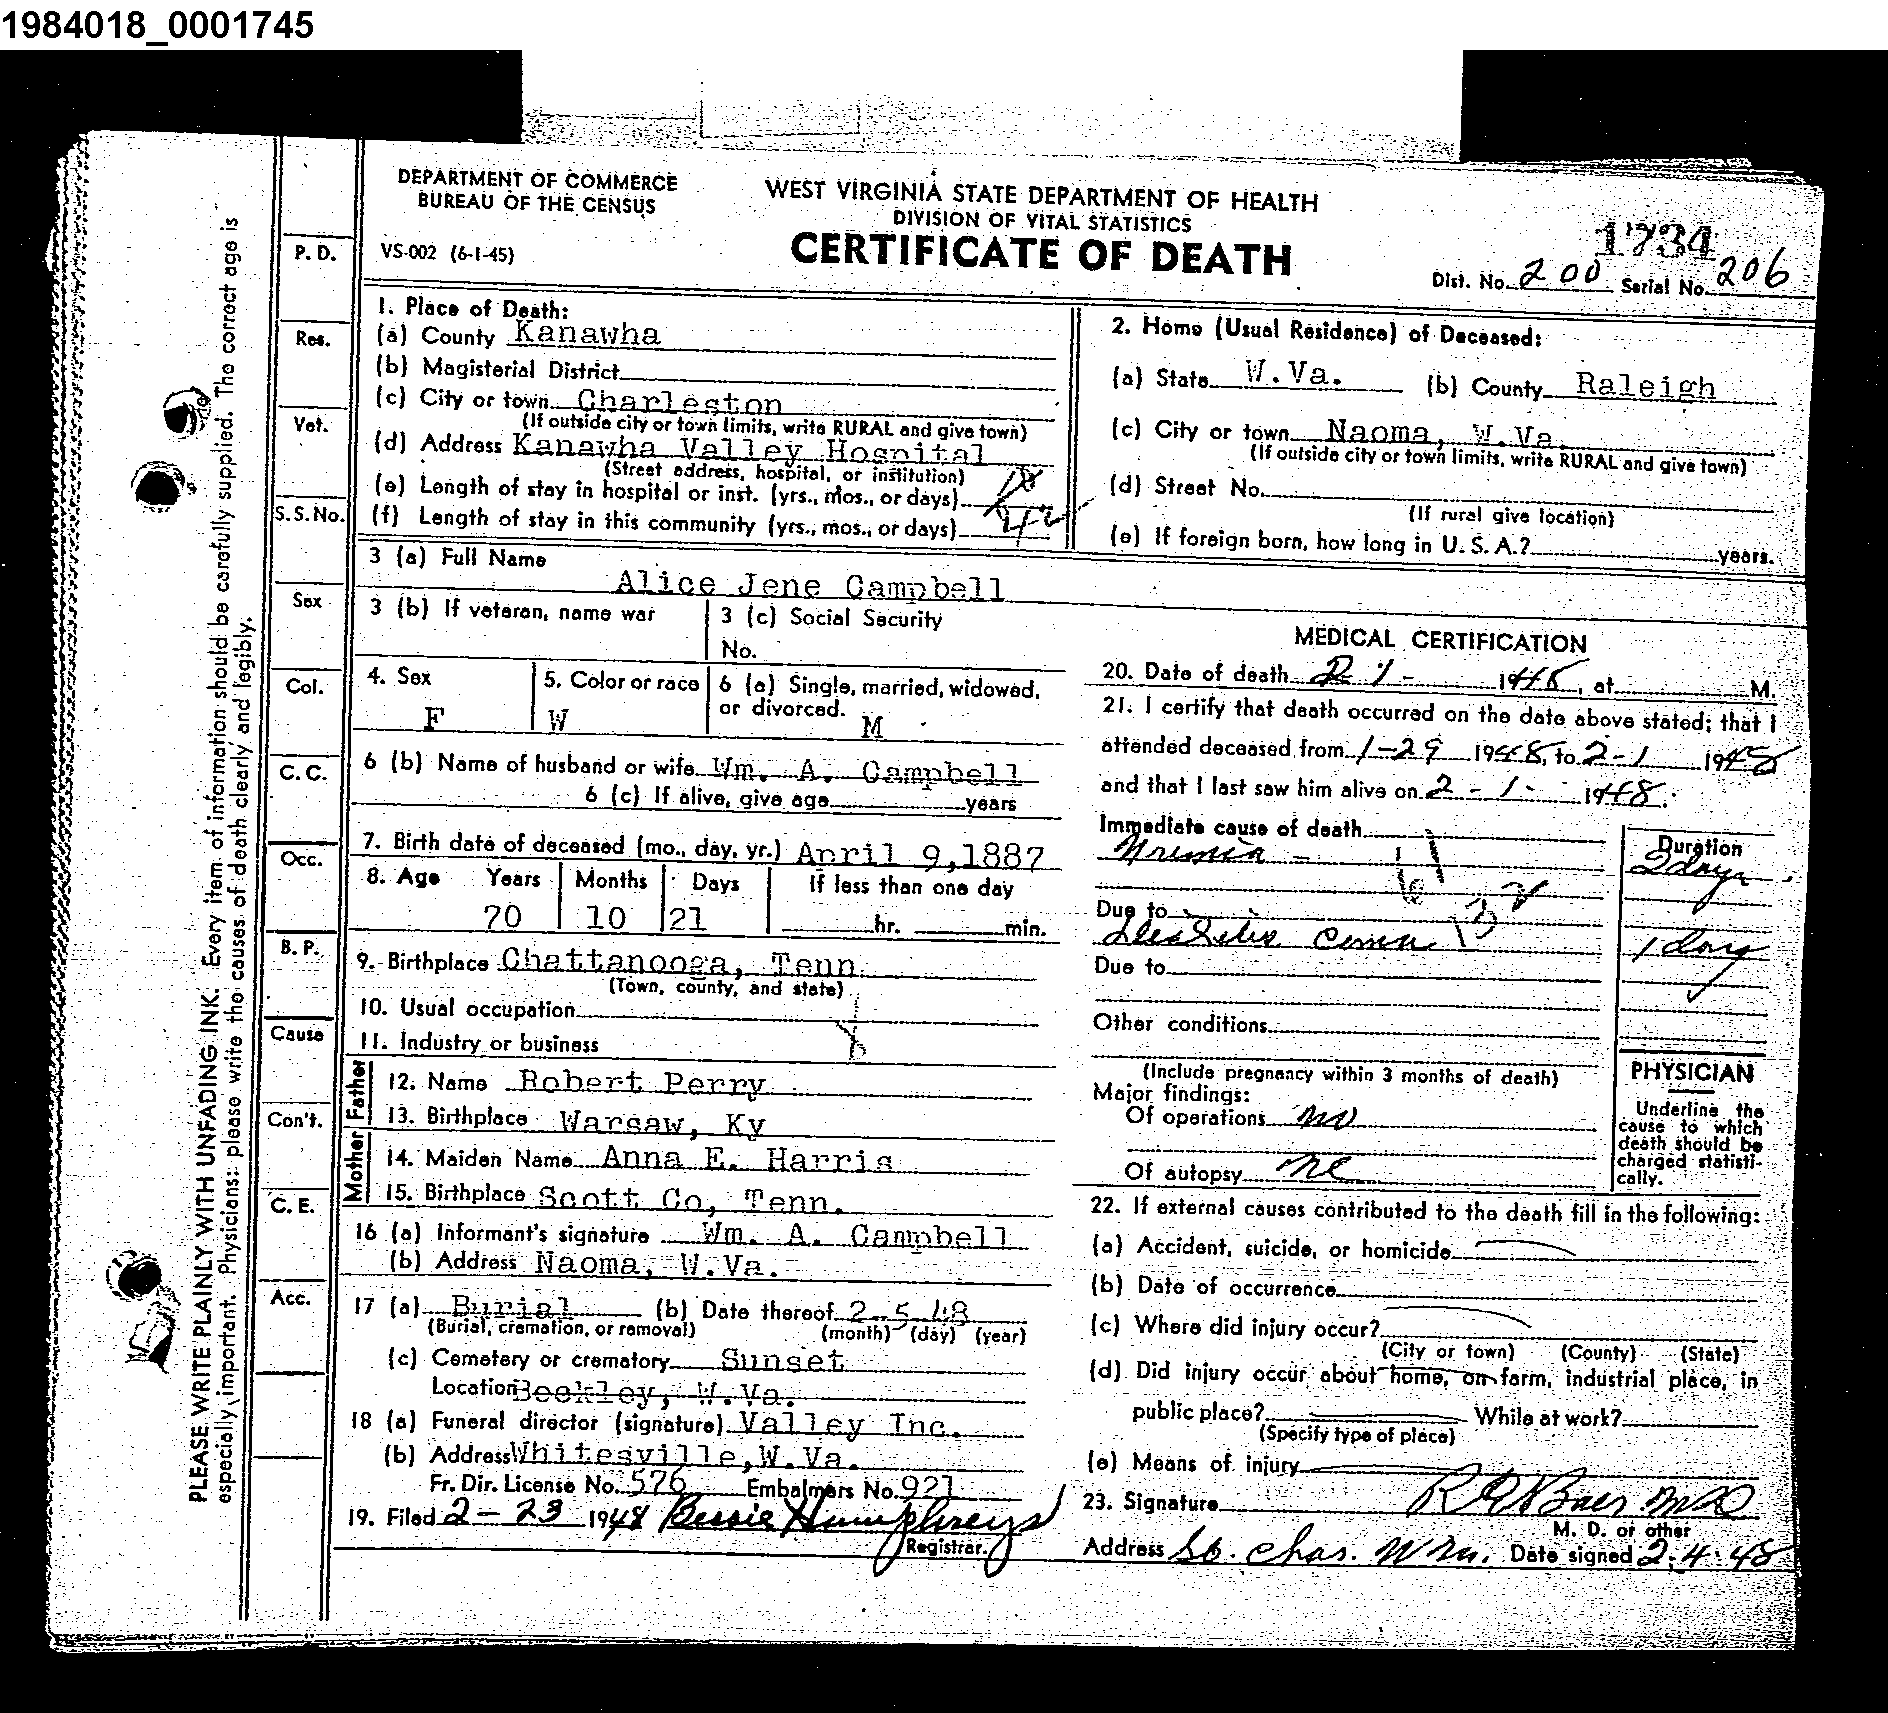 1984018_0001745
DEPARTMENT OF COMMERCE
BUREAU OF THE CENSUS
WEST VIRGINIA STATE DEPARTMENT OF HEALTH
DIVISION OF VITAL STATISTICS
CERTIFICATE OF DEATH
VS-002 (6-1-45)
1734
Dist. No. 200 Serial No. 206
PLEASE WRITE PLAINLY WITH UNFADING INK. Every item of information should be carefully supplied. The correct age is
especially important. Physicians: please write the causes of death clearly and legibly.
P. D.
Res.
Vet.
S. S. No.
Sex
Col.
C. C.
Occ.
B. P.
Cause
Con't.
C. E.
Acc.
1. Place of Death:
(a) County Kanawha
(b) Magisterial District
(c) City or town Charleston
(If outside city or town limits, write RURAL and give town)
(d) Address Kanawha Valley Hospital
(Street address, hospital, or institution)
(e) Length of stay in hospital or inst. (yrs., mos., or days)
(f) Length of stay in this community (yrs., mos., or days)
2. Home (Usual Residence) of Deceased:
(a) State W.Va. (b) County Raleigh
(c) City or town Naoma, W.Va.
(If outside city or town limits, write RURAL and give town)
(d) Street No.
(If rural give location)
(e) If foreign born, how long in U. S. A.? years.
3 (a) Full Name
Alice Jene Campbell
3 (b) If veteran, name war
3 (c) Social Security
No.
4. Sex
F
5. Color or race
W
6 (a) Single, married, widowed,
or divorced. M
6 (b) Name of husband or wife Wm. A. Campbell
6 (c) If alive, give age years
7. Birth date of deceased (mo., day, yr.) April 9,1887
8. Age Years Months Days If less than one day
70 10 21 hr. min.
9. Birthplace Chattanooga, Tenn
(Town, county, and state)
10. Usual occupation
11. Industry or business
Father
12. Name Robert Perry
13. Birthplace Warsaw, Ky
Mother
14. Maiden Name Anna E. Harris
15. Birthplace Scott Co, Tenn.
16 (a) Informant's signature Wm. A. Campbell
(b) Address Naoma, W.Va.
17 (a) Burial (b) Date thereof 2-5 48
(Burial, cremation, or removal) (month) (day) (year)
(c) Cemetery or crematory Sunset
Location Beckley, W.Va.
18 (a) Funeral director (signature) Valley Inc.
(b) Address Whitesville,W.Va.
Fr. Dir. License No. 576 Embalmers No. 921
19. Filed 2-23 1948 Bessie Humphreys
Registrar.
MEDICAL CERTIFICATION
20. Date of death 2-1- 1948, at M.
21. I certify that death occurred on the date above stated; that I
attended deceased from 1-29 1948, to 2-1 1948
and that I last saw him alive on 2-1- 1948.
Immediate cause of death
Uremia
Duration
2 days
Due to
Diabetic Coma
1 day
Due to
Other conditions
(Include pregnancy within 3 months of death)
Major findings:
Of operations no
Of autopsy no
PHYSICIAN
Underline the
cause to which
death should be
charged statisti-
cally.
22. If external causes contributed to the death fill in the following:
(a) Accident, suicide, or homicide
(b) Date of occurrence
(c) Where did injury occur?
(City or town) (County) (State)
(d) Did injury occur about home, on farm, industrial place, in
public place? While at work?
(Specify type of place)
(e) Means of injury
23. Signature
M. D. or other
Address So. Chas. W Va. Date signed 2-4-48